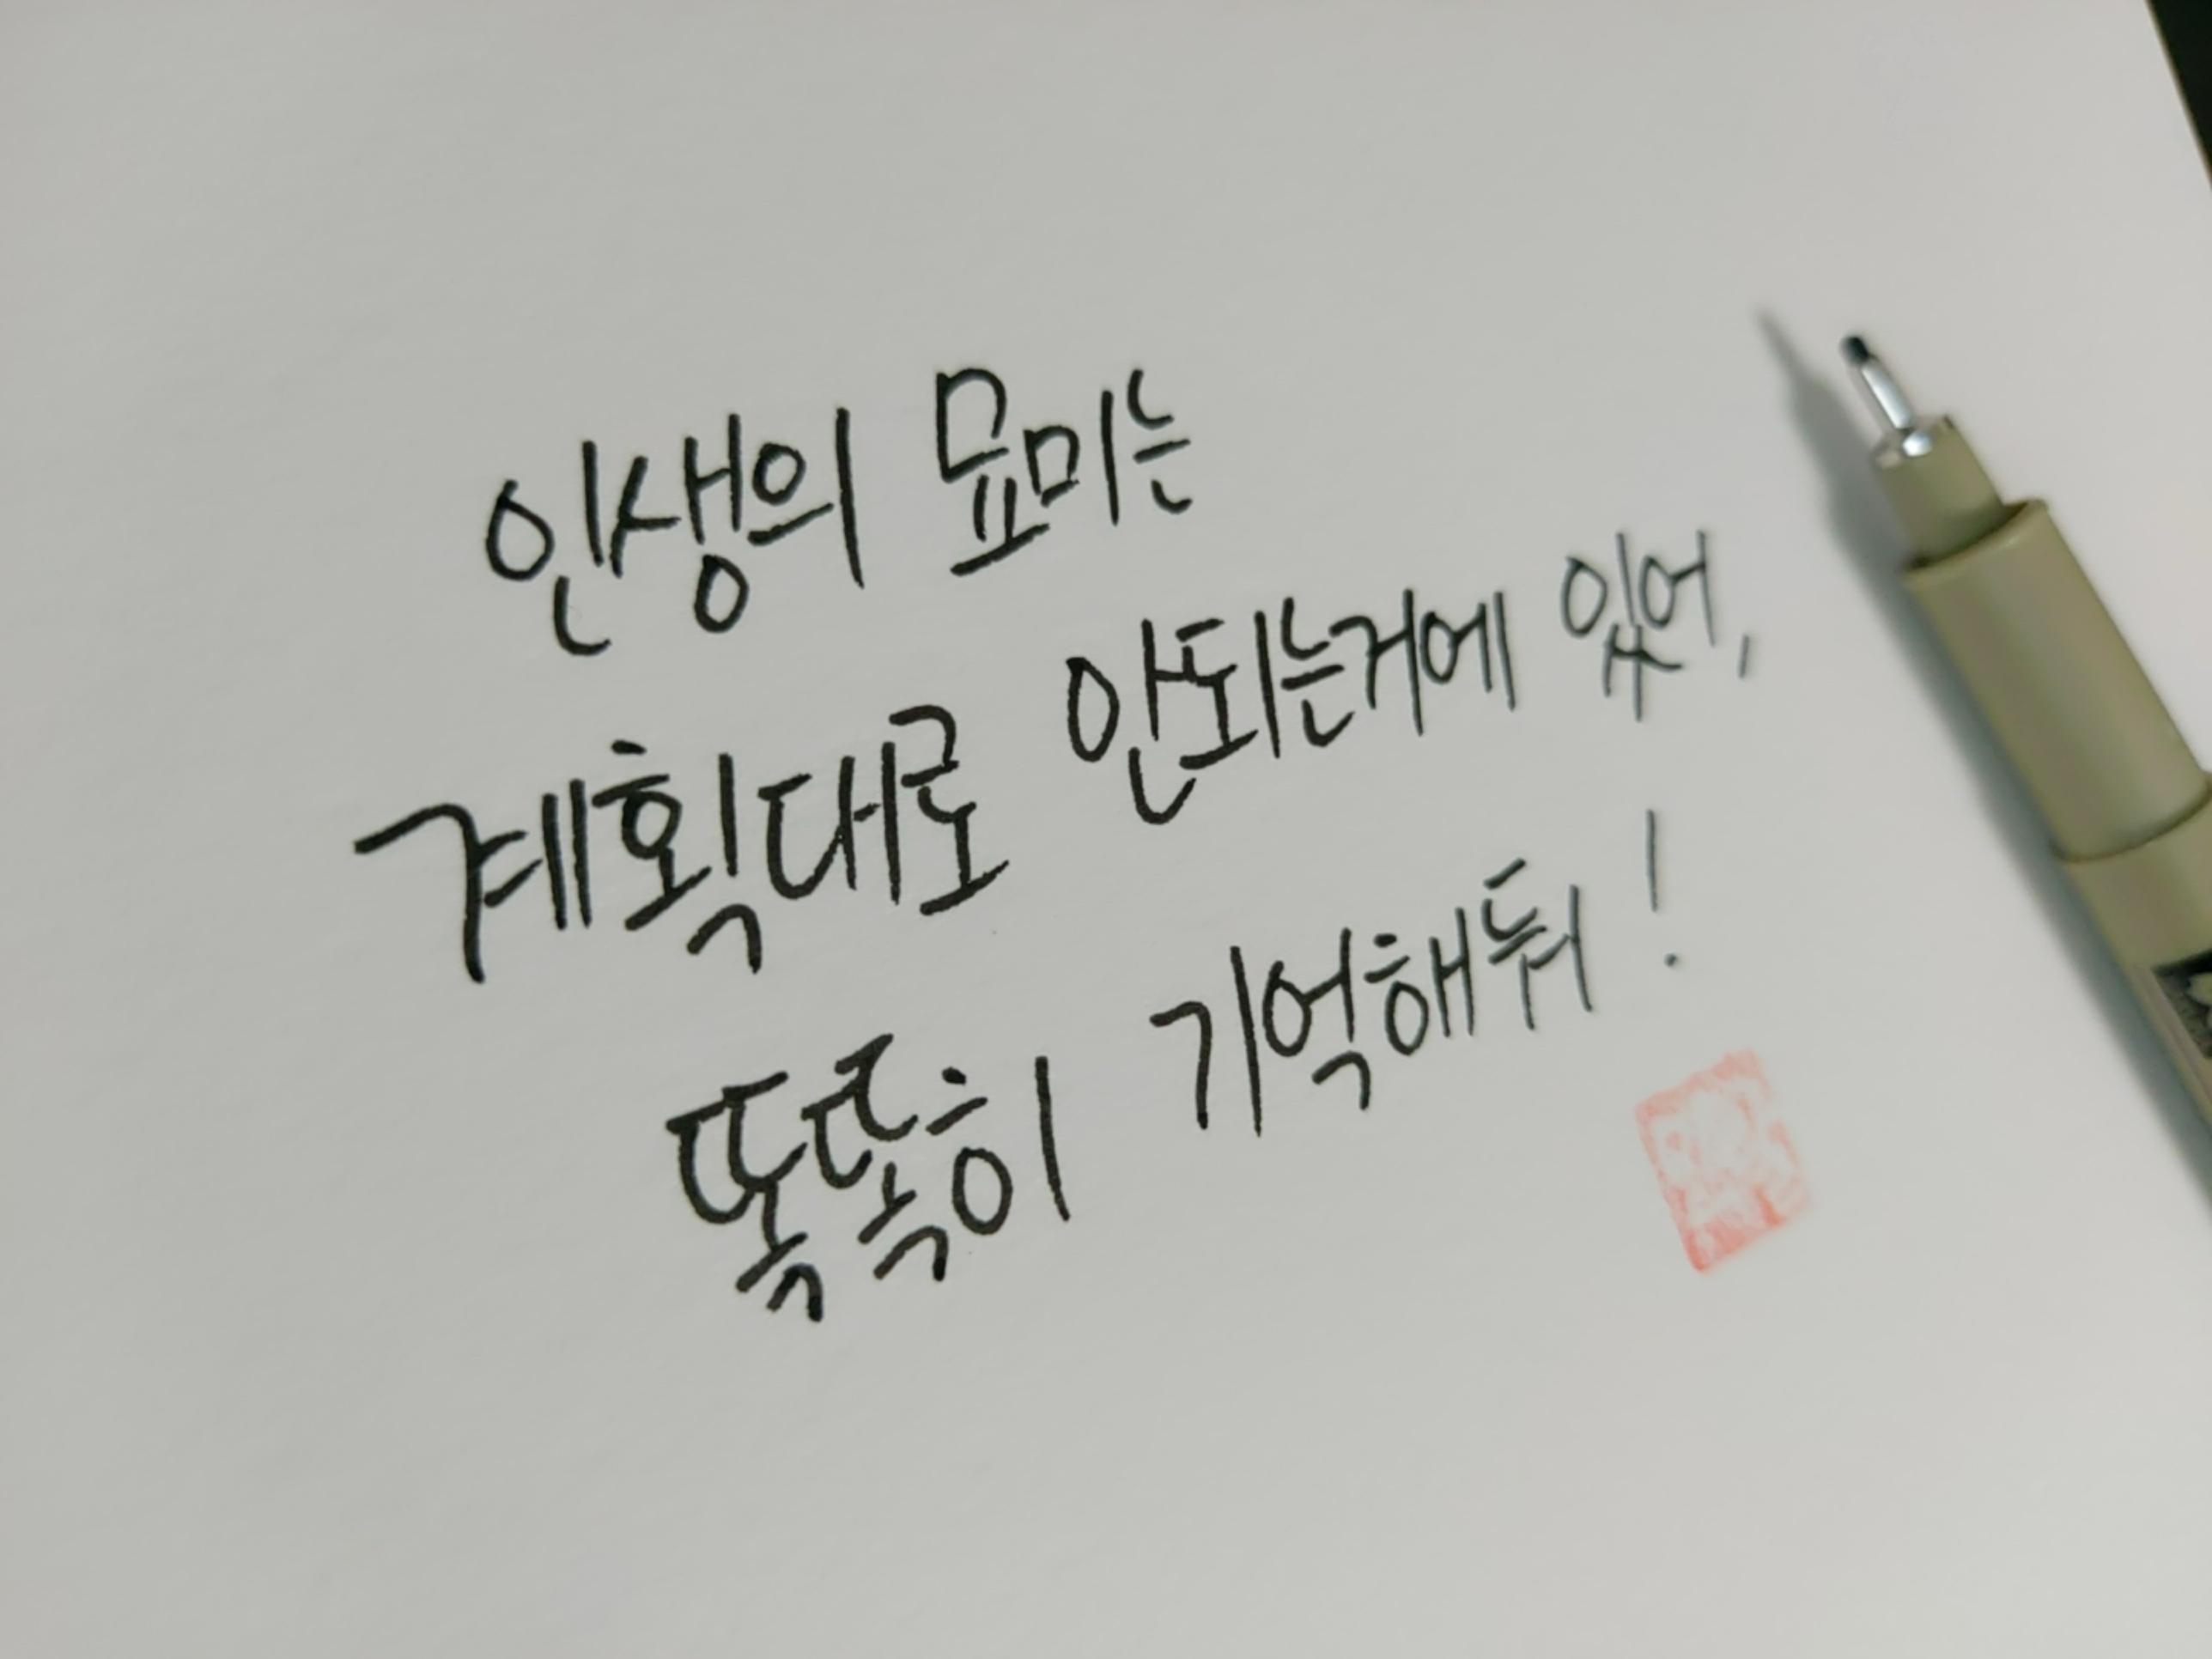 인생의 묘미는
계획대로 안되는거에 있어,
똑똑히 기억해둬!